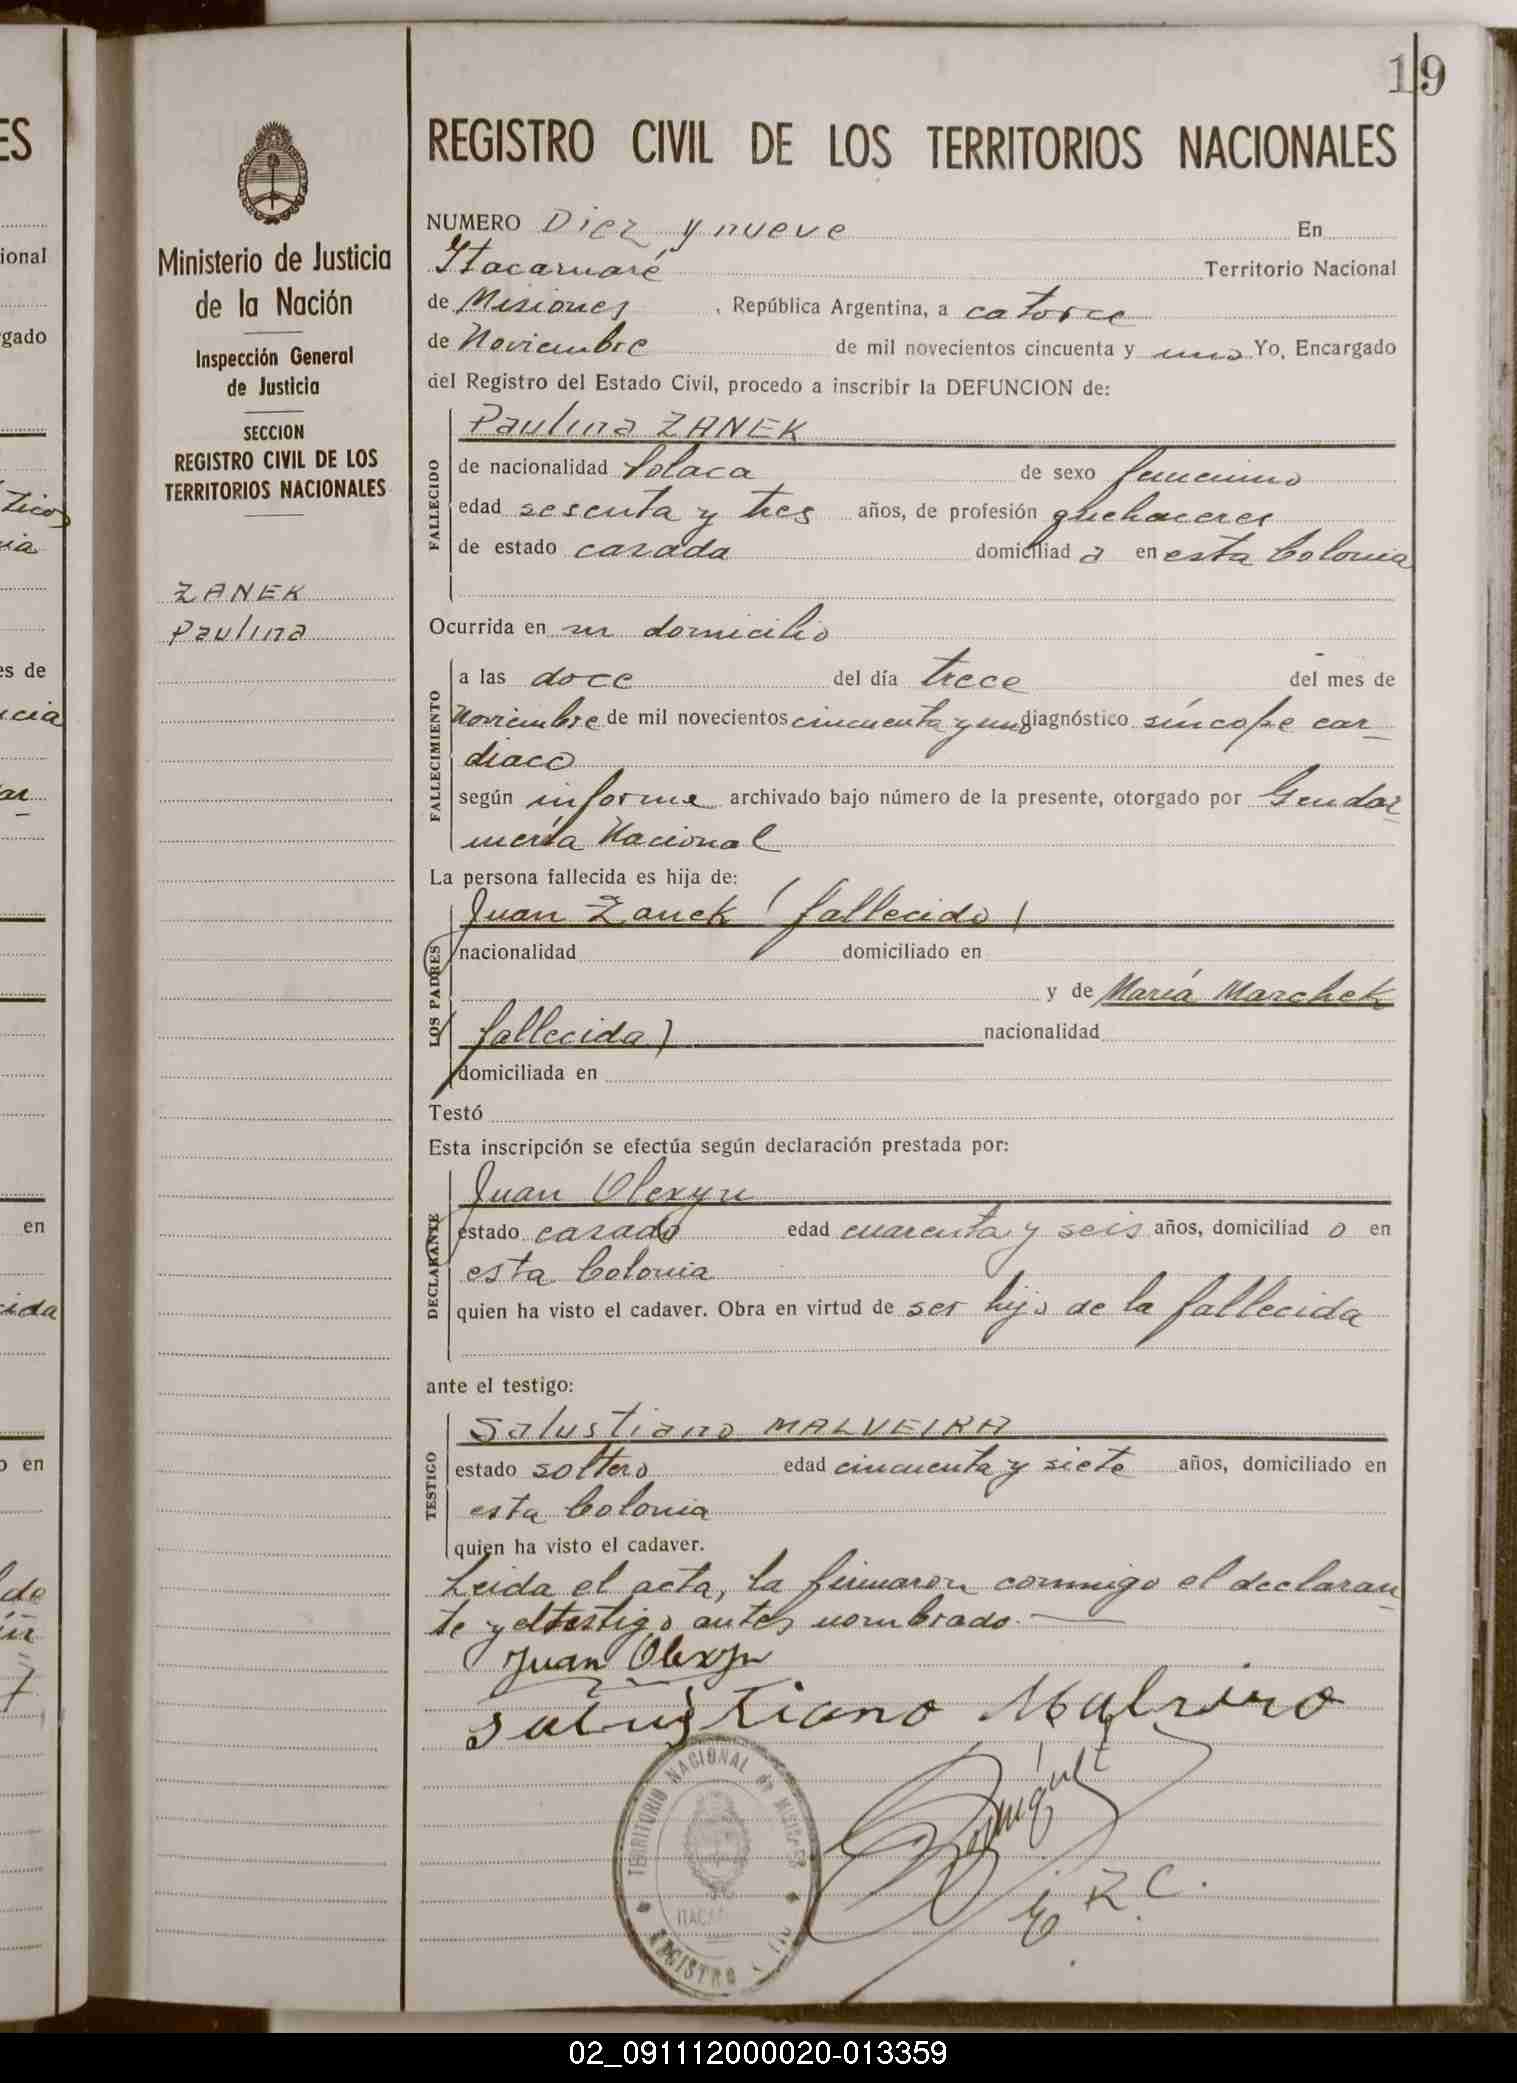 19
REGISTRO CIVIL DE LOS TERRITORIOS NACIONALES
Ministerio de Justicia
de la Nación
Inspección General
de Justicia
SECCION
REGISTRO CIVIL DE LOS
TERRITORIOS NACIONALES
ZANEK
Paulina
NUMERO Diez y nueve En
Itacaruaré Territorio Nacional
de Misiones, República Argentina, a catorce
de Noviembre de mil novecientos cincuenta y uno Yo, Encargado
del Registro del Estado Civil, procedo a inscribir la DEFUNCION de:
FALLECIDO
Paulina ZANEK
de nacionalidad Polaca de sexo femenino
edad sesenta y tres años, de profesión quehaceres
de estado casada domiciliad a en esta Colonia
Ocurrida en su domicilio
FALLECIMIENTO
a las doce del día trece del mes de
Noviembre de mil novecientos cincuenta y uno diagnóstico síncope car-
diaco
según informe archivado bajo número de la presente, otorgado por Gendar-
mería Nacional
La persona fallecida es hija de:
LOS PADRES
Juan Zanek (fallecido)
nacionalidad domiciliado en
y de María Marchek
(fallecida) nacionalidad
domiciliada en
Testó
Esta inscripción se efectúa según declaración prestada por:
DECLARANTE
Juan Olexyn
estado casado edad cuarenta y seis años, domiciliad o en
esta Colonia
quien ha visto el cadaver. Obra en virtud de ser hijo de la fallecida
ante el testigo:
TESTIGO
Salustiano MALVEIRA
estado soltero edad cincuenta y siete años, domiciliado en
esta Colonia
quien ha visto el cadaver.
Leida el acta, la firmaron conmigo el declaran-
te y el testigo antes nombrado.
Juan Olexyn
Salustiano Malviro
TERRITORIO NACIONAL de MISIONES
REGISTRO
E. R. C.
02_091112000020-013359